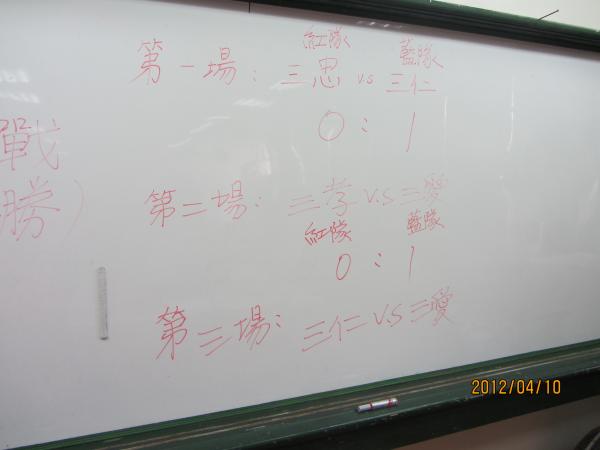 紅隊 藍隊
第一場：三思 vs 三仁
0：1
戰
勝）
第二場：三孝 v.s 三愛
紅隊 藍隊
0：1
第三場：三仁 v.s 三愛
2012/04/10